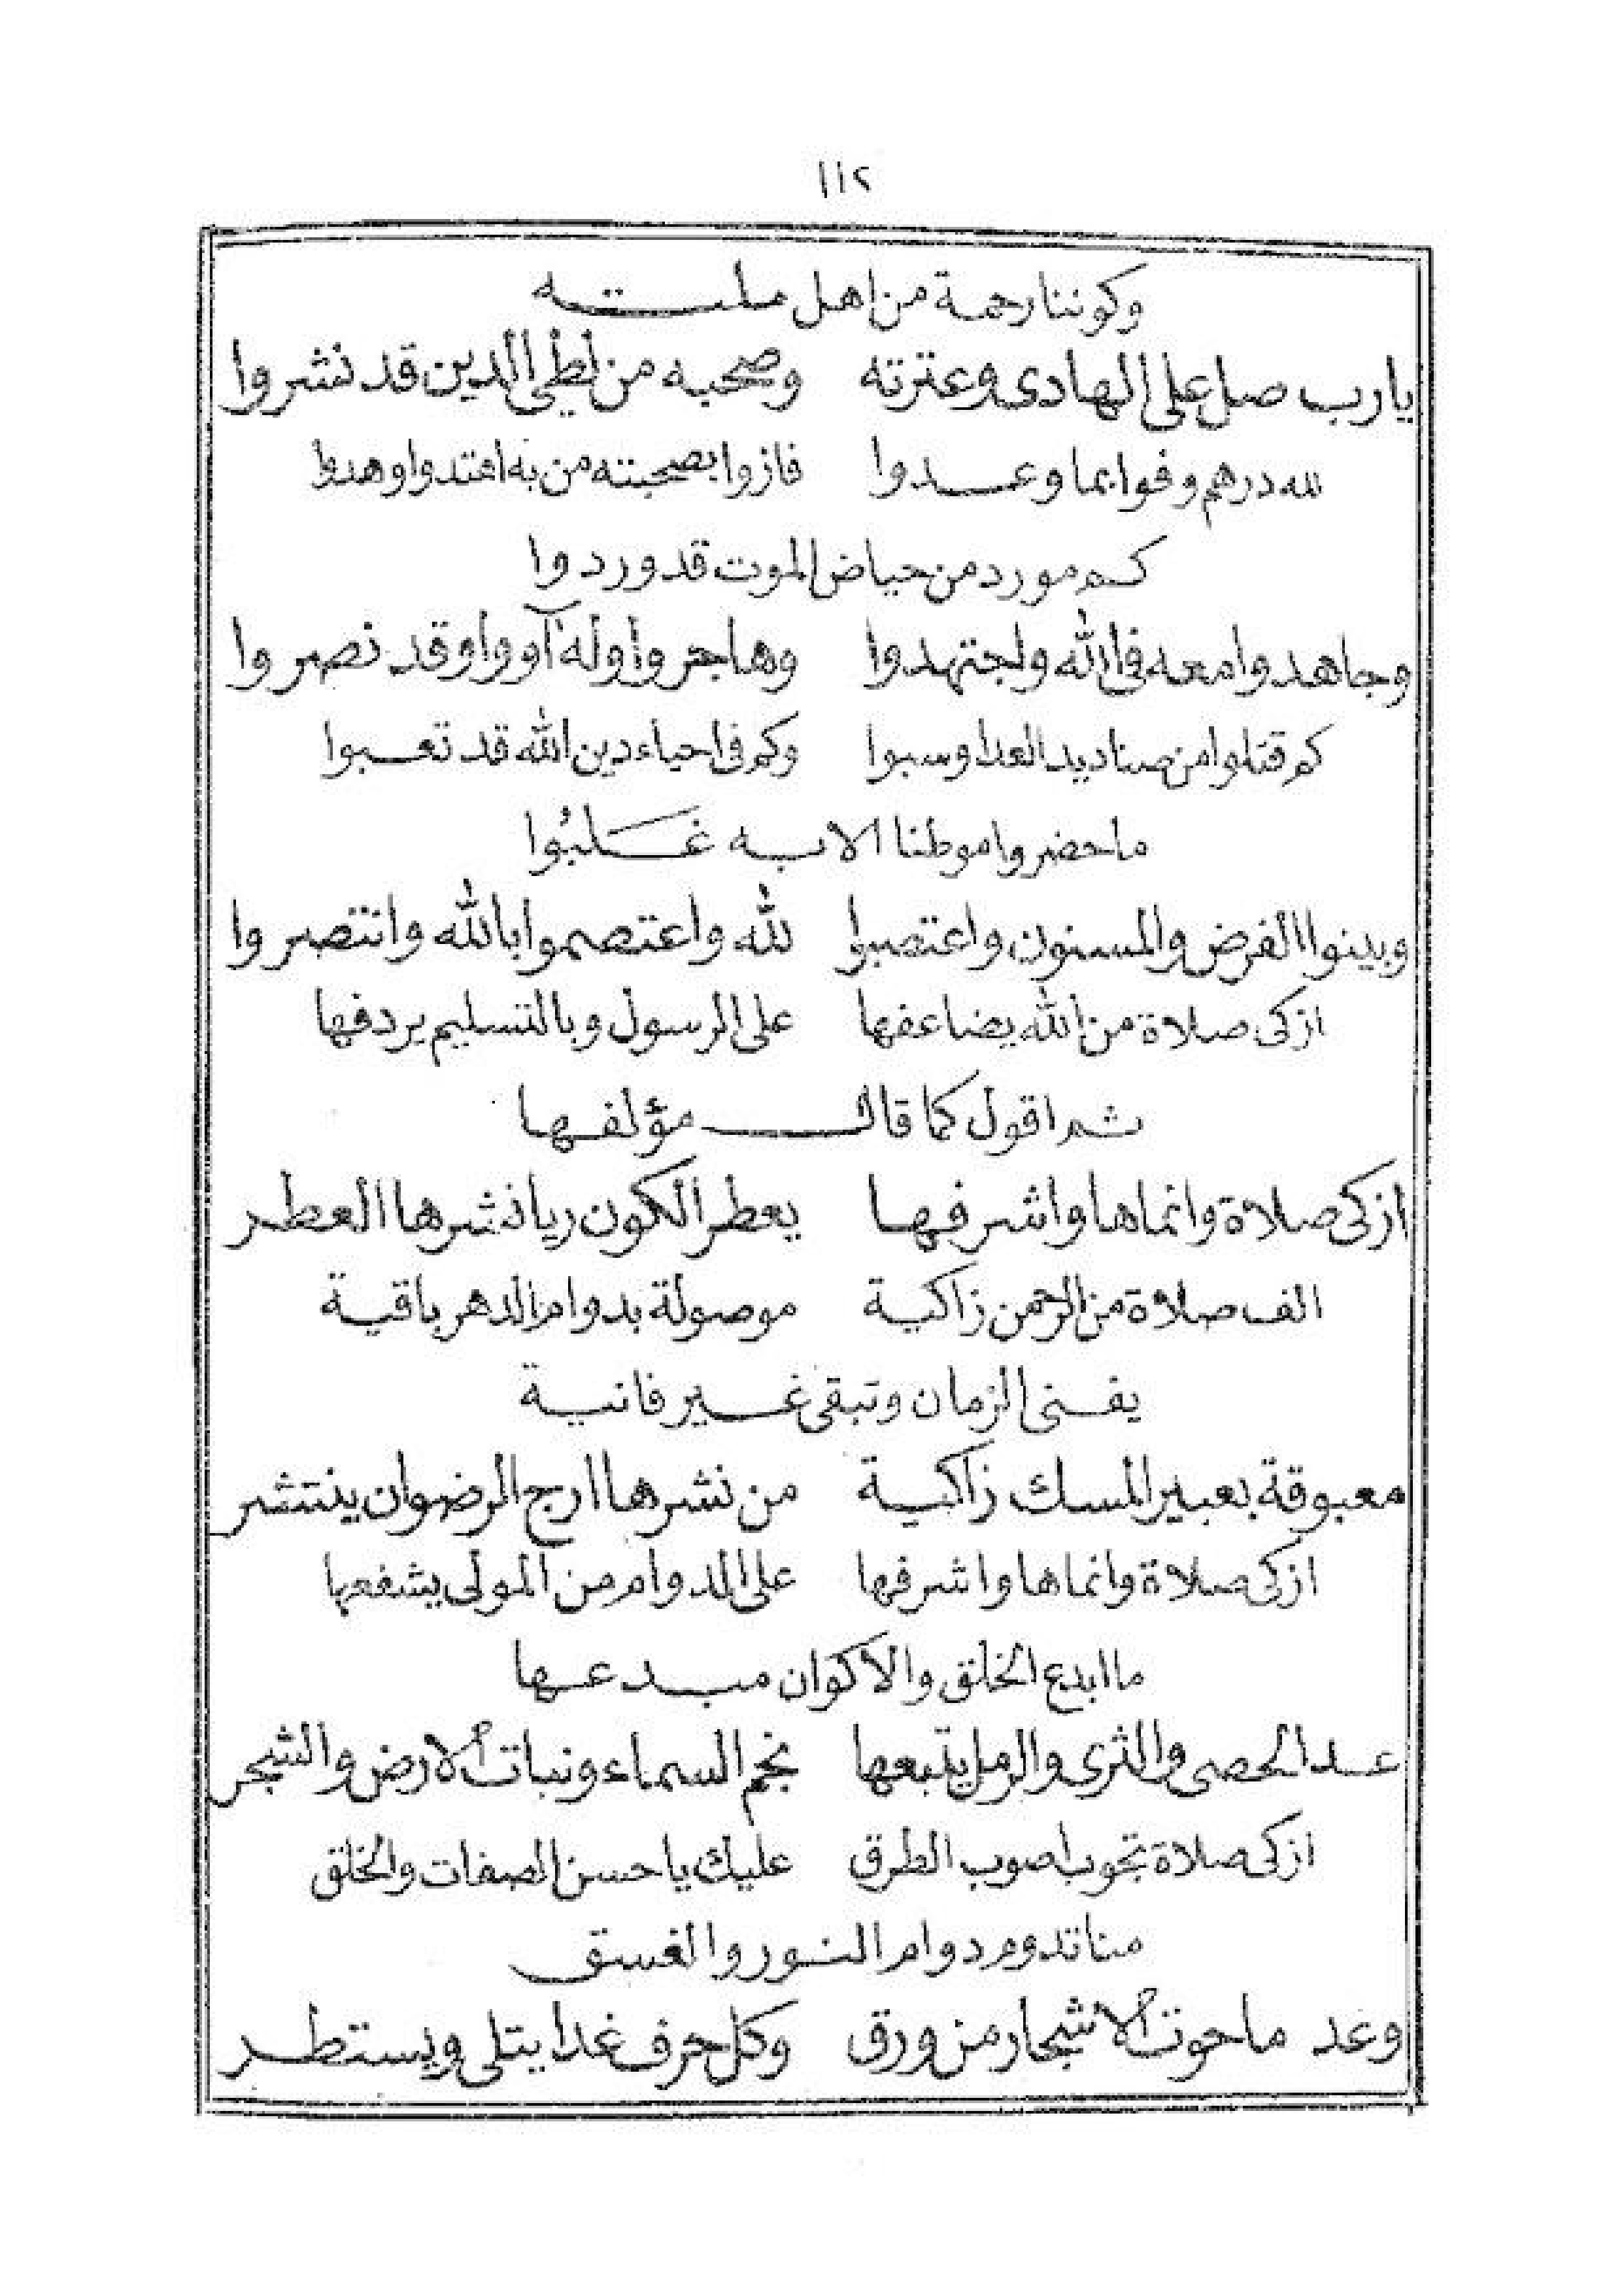 ١١٢
وكوننا رحمة من اهل ملته
يارب صل على الهادى وعترته وصحبه من لطى الدين قد نشروا
لله درهم وفوا بما وعدوا فازوا بصحبته من به اعتدوا وهدوا
كم مورد من حياض الموت قد وردوا
وجاهدوا معه فى الله واجتهدوا وهاجروا وله آووا وقد نصروا
كم قتلوا من صناديد العدا وسبوا وكم فى احياء دين الله قد تعبوا
ما حضروا موطنا الا به غَلبُوا
وبينوا الفرض والمسنون واعتصبوا لله واعتصموا بالله وانتصروا
ازكى صلاة من الله يضاعفها على الرسول وبالتسليم يردفها
ثم اقول كما قال مؤلفها
ازكى صلاة وانماها واشرفها يعطر الكون ريا نشرها العطر
الف صلاة من الرحمن زاكية موصولة بدوام الدهر باقية
يفنى الزمان وتبقى غير فانية
معبوقة بعبير المسك زاكية من نشرها ارج الرضوان ينتشر
ازكى صلاة وانماها واشرفها على الدوام من المولى يشفعها
ما ابدع الخلق والاكوان مبدعها
عد الحصى والثرى والرمل يتبعها نجم السماء ونبات الارض والشجر
ازكى صلاة تجوب اصوب الطرق عليك يا حسن الصفات والخلق
منا تدوم دوام النور والغسق
وعد ما حوت الاشجار من ورق وكل حرف غدا يتلى ويستطر